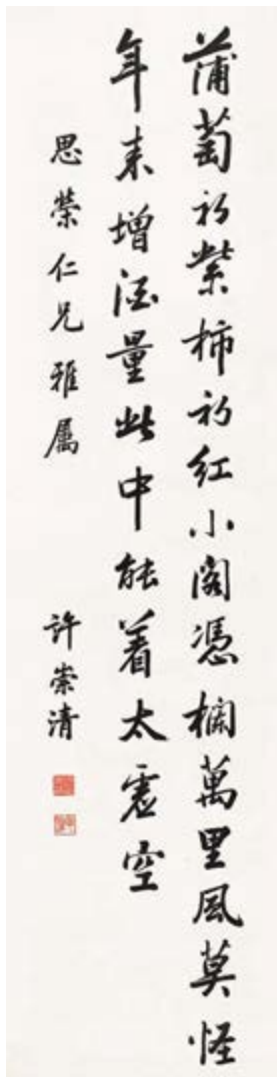 蒲萄初紫柿初紅小閣憑欄萬里風莫怪
年來增酒量此中能着太虛空
思榮仁兄雅屬
許崇清